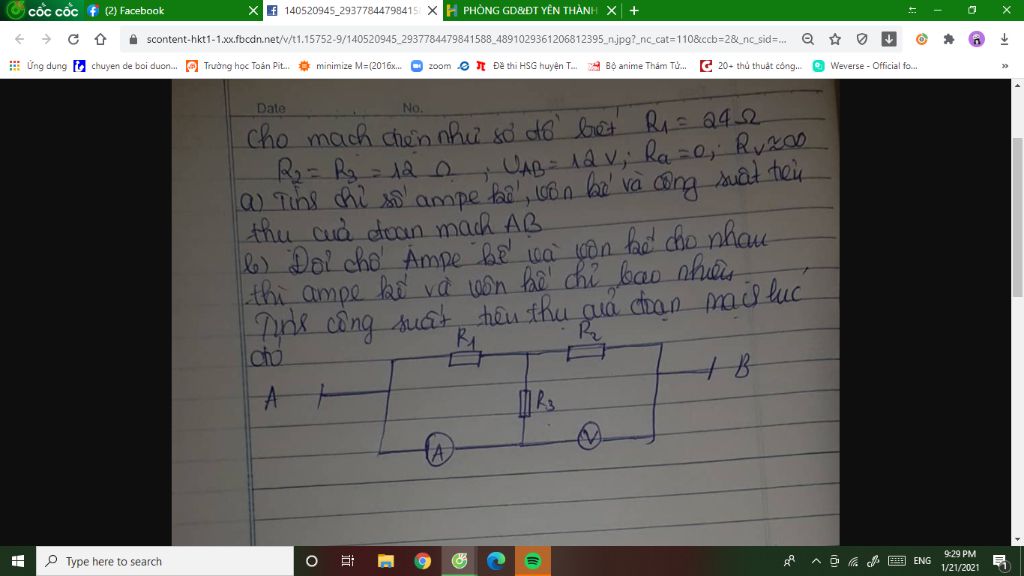 CỐC CỐC
(2) Facebook
140520945_2937784479841588
PHÒNG GD&ĐT YÊN THÀNH
scontent-hkt1-1.xx.fbcdn.net/v/t1.15752-9/140520945_2937784479841588_4891029361206812395_n.jpg?_nc_cat=110&ccb=2&_nc_sid=...
Ứng dụng
chuyen de boi duon...
Trường học Toán Pit...
minimize M=(2016x...
zoom
Đề thi HSG huyện T...
Bộ anime Thám Tử...
20+ thủ thuật công...
Weverse - Official fo...
Date No.
Cho mạch điện như sơ đồ biết R1 = 24Ω
R2 = R3 = 12 Ω ; UAB = 12 V; Ra = 0; Rv ≈ ∞
a) Tính chỉ số ampe kế, vôn kế và công suất tiêu
thụ của đoạn mạch AB
b) Đổi chỗ Ampe kế và vôn kế cho nhau
thì ampe kế và vôn kế chỉ bao nhiêu
Tính công suất tiêu thụ của đoạn mạch lúc
đó
R1
R2
A
B
R3
A
V
Type here to search
ENG
9:29 PM
1/21/2021
1